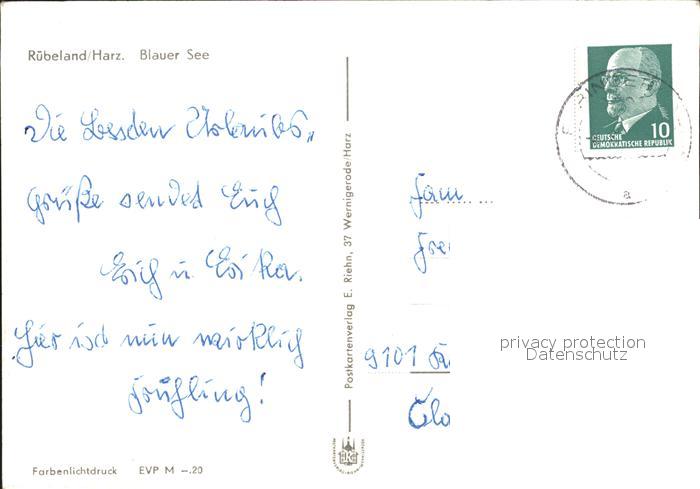 Rübeland/Harz. Blauer See
Die besden Urlaubs„
grüße sended Euch
Erich u. Erika.
Hier isd nun wirklich
Frühling!
Farbenlichtdruck EVP M –.20
Postkartenverlag E. Riehn, 37 Wernigerode/Harz
10
DEUTSCHE
DEMOKRATISCHE REPUBLIK
a
Fam
Fre
9101
Clo
privacy protection
Datenschutz